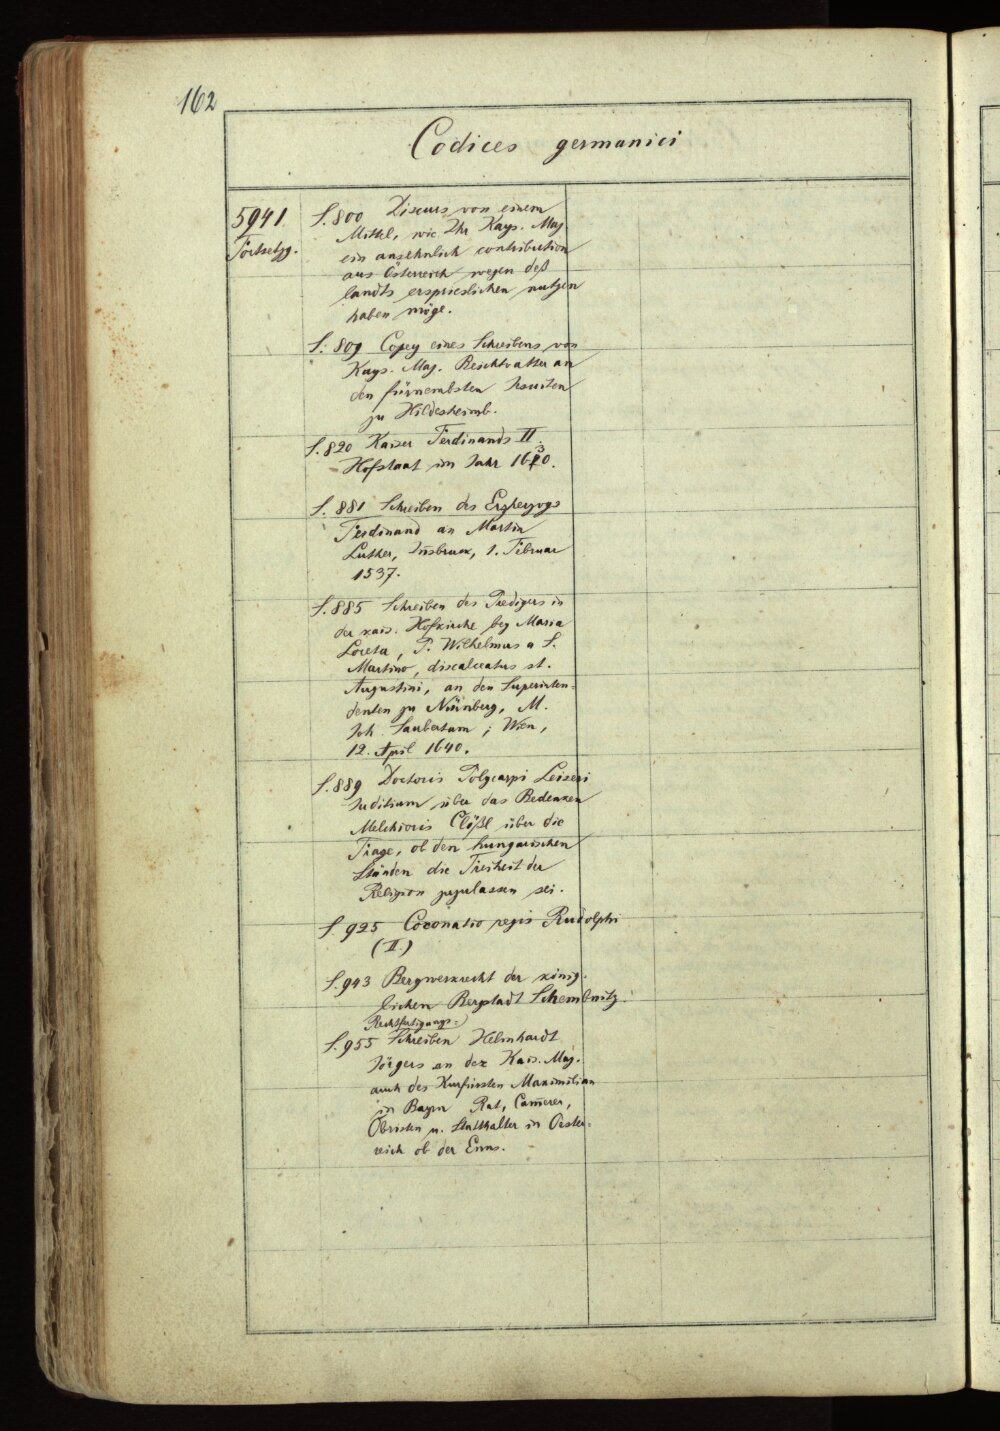 162
Codices germanici
5941
Fortsetzg.
S. 800 Discurs von einem
Mittel, wie Ihr Kays. Maj
ein ansehnlich contribution
aus Österreich wegen deß
landts ersprieslichen nutzen
haben möge.
S. 809 Copey eines Schreibens von
Kays. Maj. Beichtvatter an
den fürnembsten Jesuiten
zu Hildesheimb.
S. 820 Kaiser Ferdinands II.
Hofstaat im Jahr 1630.
S. 881 Schreiben des Erzherzogs
Ferdinand an Martin
Luther, Insbruck, 1. Februar
1537.
S. 885 Schreiben des Predigers in
der kais. Hofkirche bey Maria
Loreta, P. Wilhelmus a S.
Martino, discalceatus st.
Augustini, an den Superinten-
denten zu Nürnberg, M.
Joh. Saubertum; Wien,
12. April 1640.
S. 889 Doctoris Polycarpi Leiseri
Juditium über das Bedenken
Melchioris Clößl über die
Frage, ob den hungarischen
Ständen die Freiheit der
Religion zuzulassen sei.
S. 925 Coronatio regis Rudolphi
(II.)
S. 943 Bergwerkrecht der könig-
lichen Bergstadt Schembnitz
Rechtfertigungs-
S. 955 Schreiben Helmhardt
Jörgers an der Kais. Maj.
auch des Kurfürsten Maximilian
in Bayrn Rat, Camerer,
Obristen u. Statthalter in Oester-
reich ob der Enns.